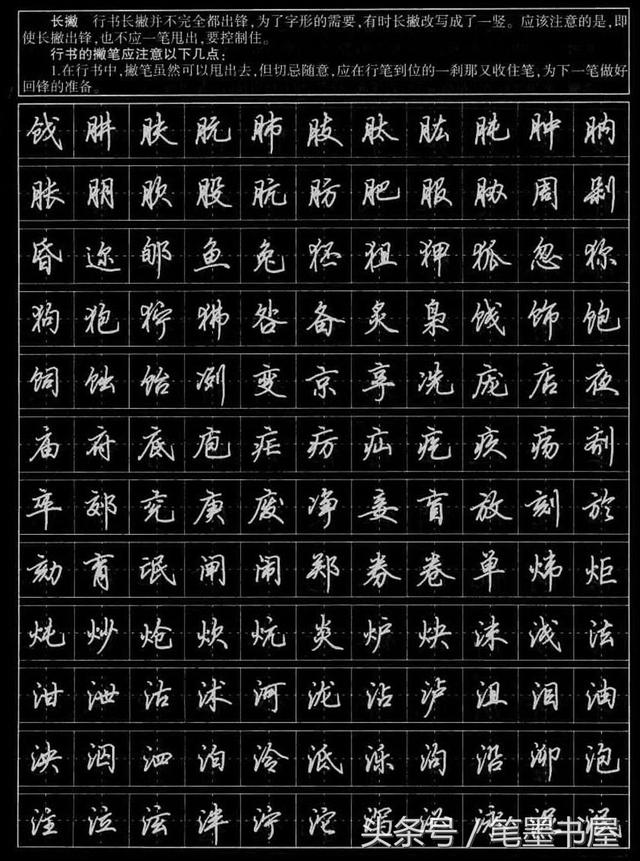 长撇 行书长撇并不完全都出锋,为了字形的需要,有时长撇改写成了一竖。应该注意的是,即
使长撇出锋,也不应一笔甩出,要控制住。
行书的撇笔应注意以下几点:
1.在行书中,撇笔虽然可以甩出去,但切忌随意,应在行笔到位的一刹那又收住笔,为下一笔做好
回锋的准备。
肼 肤 朊 肺 肢 肽 肱 肫 肿 肭
胀 朋 肷 股 肮 肪 肥 服 胁 周 剁
昏 迩 郇 鱼 兔 狉 狙 狎 狐 忽 狝
狗 狍 狞 狒 咎 备 炙 枭 饯 饰 饱
饲 蚀 饴 冽 变 京 享 冼 庞 店 夜
庙 府 底 庖 疟 疠 疝 疙 疚 疡 剂
卒 郊 兖 庚 废 净 妾 盲 放 刻 於
劾 育 氓 闸 闹 郑 券 卷 单 炜 炬
炖 炒 炝 炊 炕 炎 炉 炔 沫 浅 法
泔 泄 沽 沭 河 泷 沾 泸 沮 泪 油
泱 泅 泗 泊 泠 泜 泺 泃 沿 泖 泡
注 泣 泫 泮 泞 沱
头条号 / 笔墨书屋